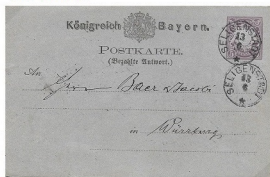 Königreich Bayern.
POSTKARTE.
(Bezahlte Antwort.)
An Herrn Baer
in Würzburg
SELIGENSTADT
13
6
SELIGENSTADT
13
6